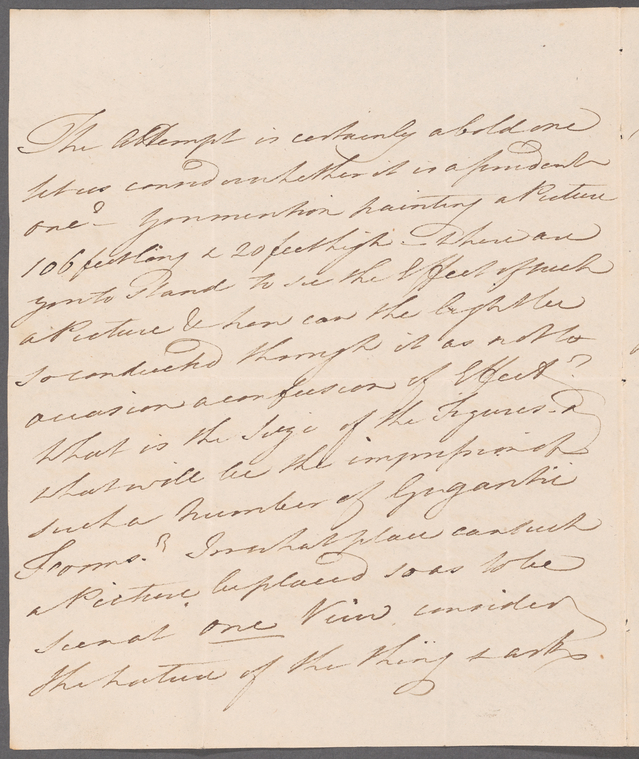 The Attempt is certainly a bold one
let us consider whether it is a prudent
one? - You mention painting a Picture
106 feet long & 20 feet high - Where are
you to Stand to see the Effect of such
a Picture & how can the Light be
so conducted through it as not to
occasion a confusion of Effect?
What is the Size of the Figures &
what will be the impression of
such a Number of Gygantic
Forms? In what place can such
a Picture be placed so as to be
seen at one View consider
the nature of the thing & ask